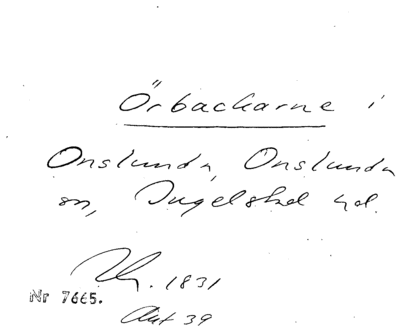 Örbackarne i
Onslunda, Onslunda
sn, Ingelstad hd.
1831
Nr 7665.
Akt 39